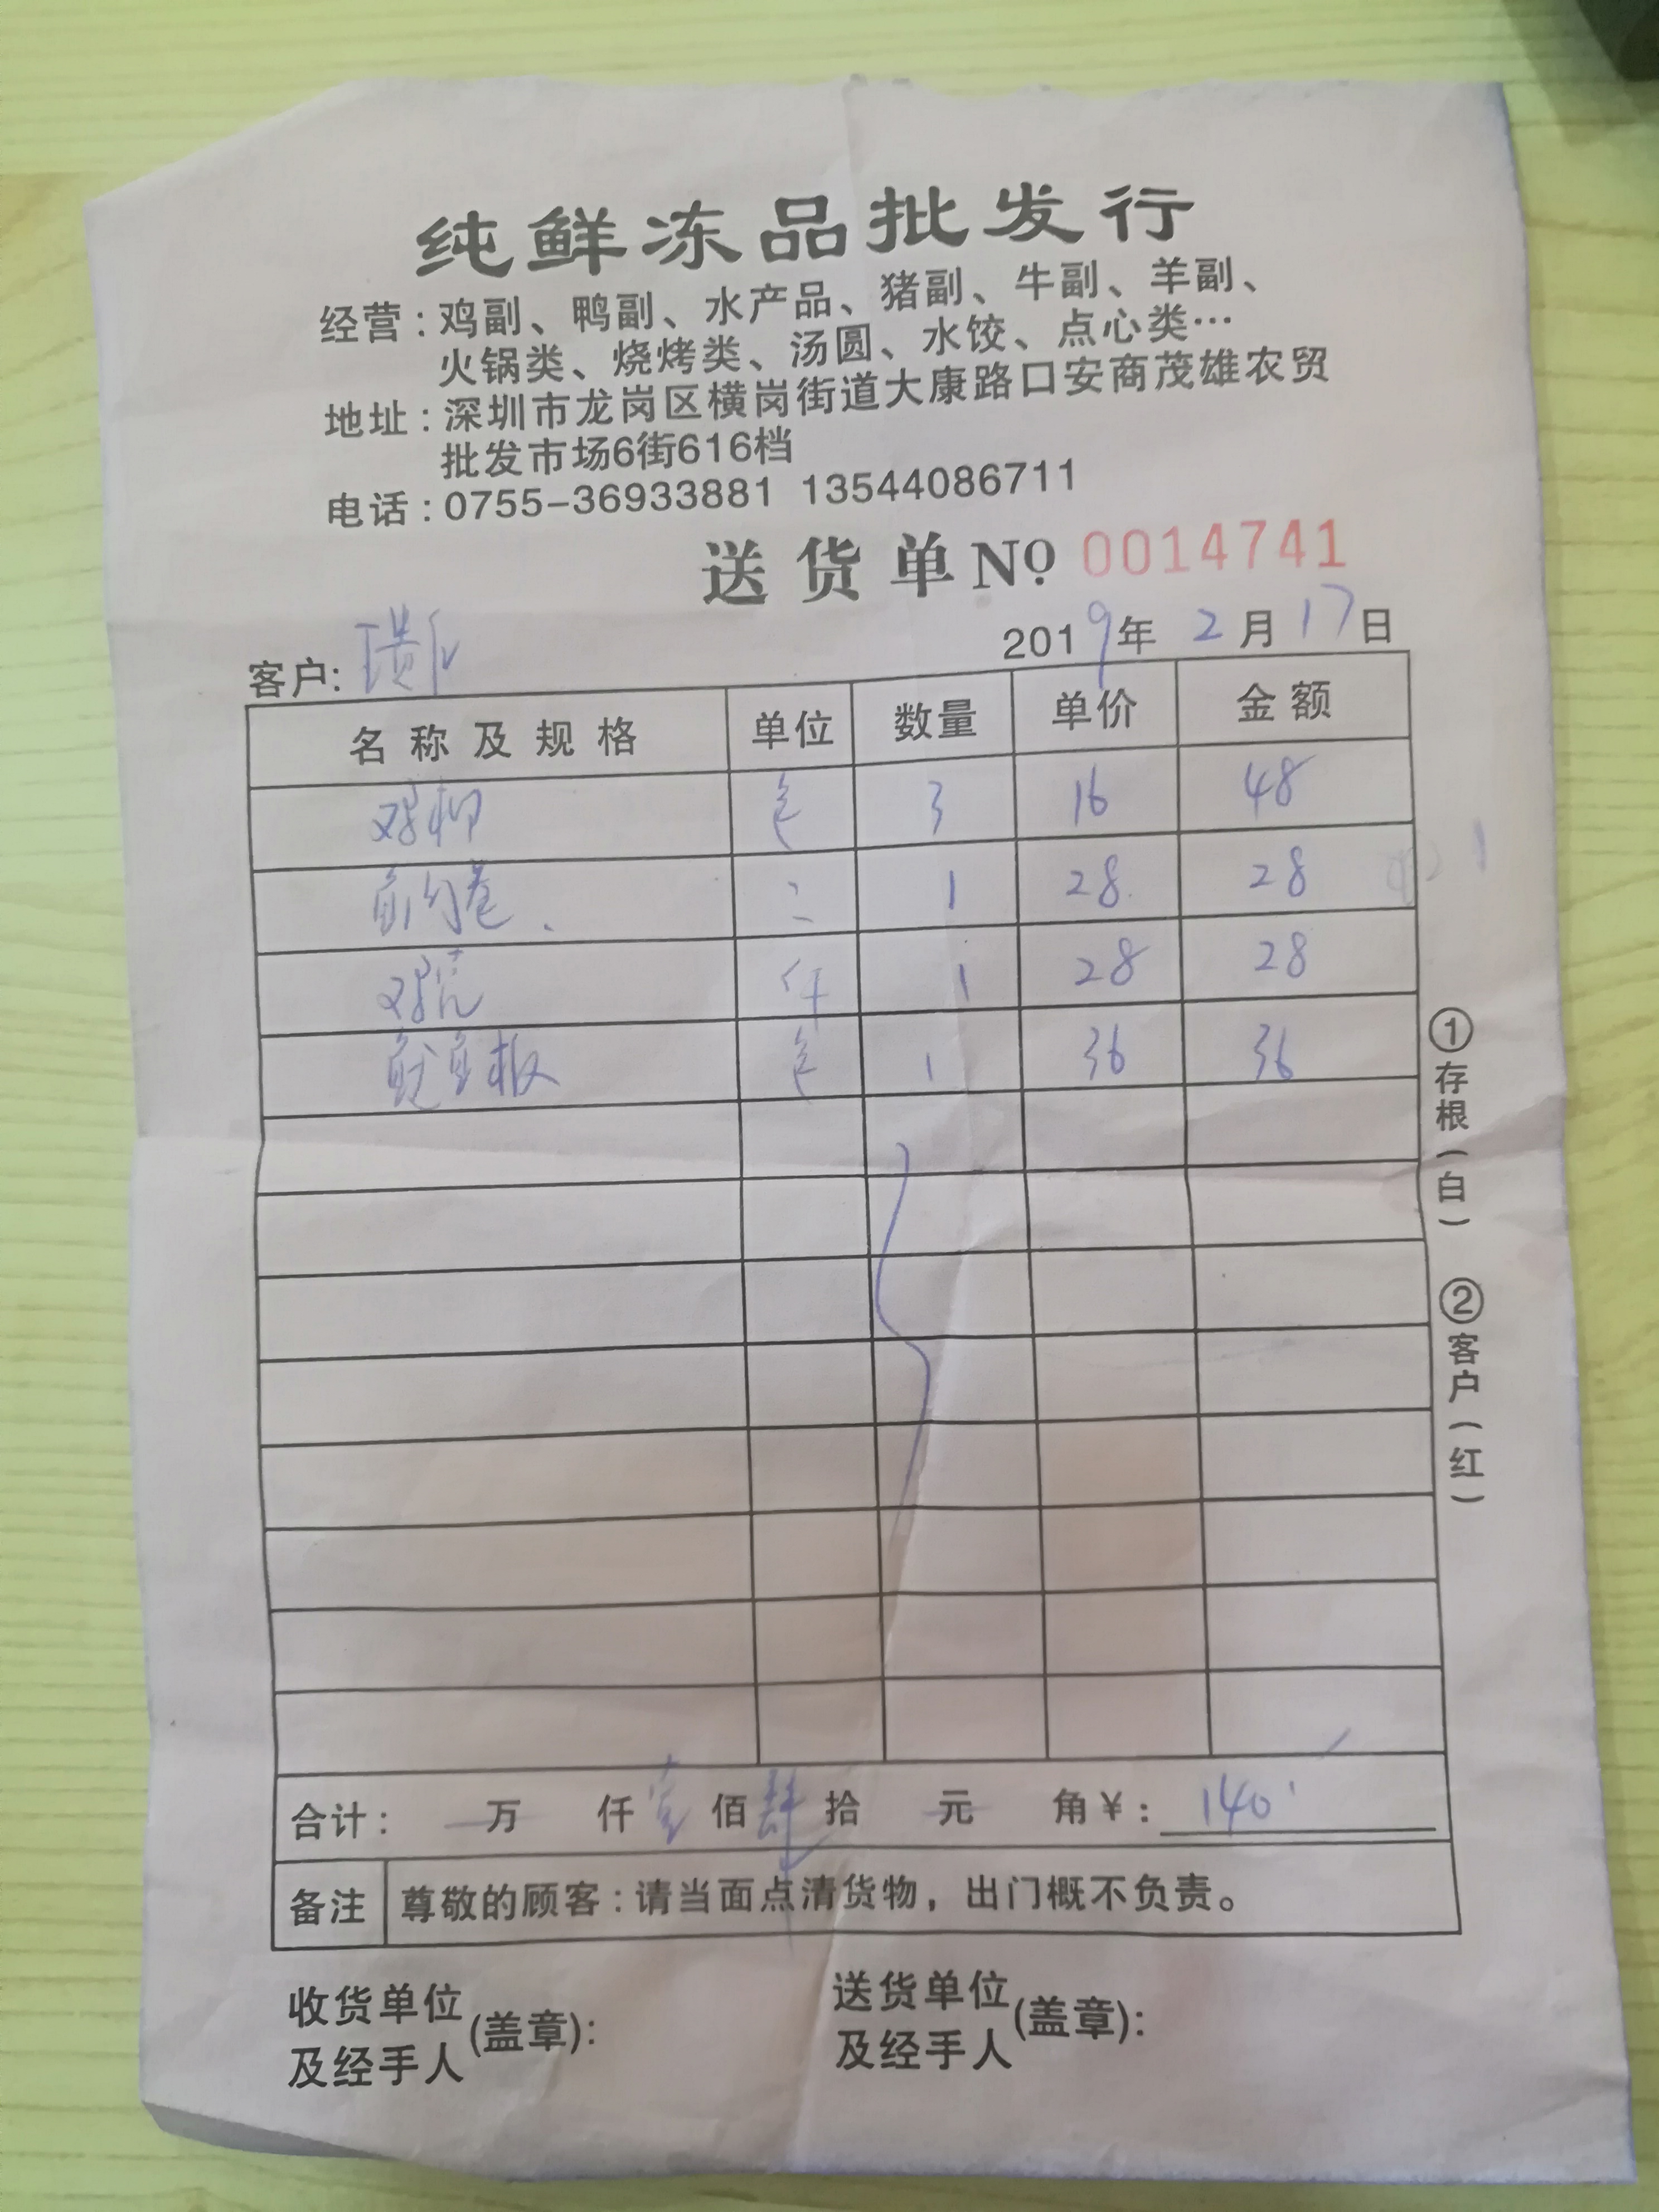 纯鲜冻品批发行
经营：鸡副、鸭副、水产品、猪副、牛副、羊副、
火锅类、烧烤类、汤圆、水饺、点心类…
地址：深圳市龙岗区横岗街道大康路口安商茂雄农贸
批发市场6街616档
电话：0755-36933881 13544086711
送货单 Nº 0014741
2019年 2月17日
客户:
名称及规格 单位 数量 单价 金额
鸡柳 包 3 16 48
1 28 28
件 1 28 28
鱿鱼板 包 1 36 36
合计： 万 仟 壹 佰 肆 拾 元 角 ¥：140
备注 尊敬的顾客：请当面点清货物，出门概不负责。
收货单位及经手人(盖章)： 送货单位及经手人(盖章)：
①存根(白) ②客户(红)